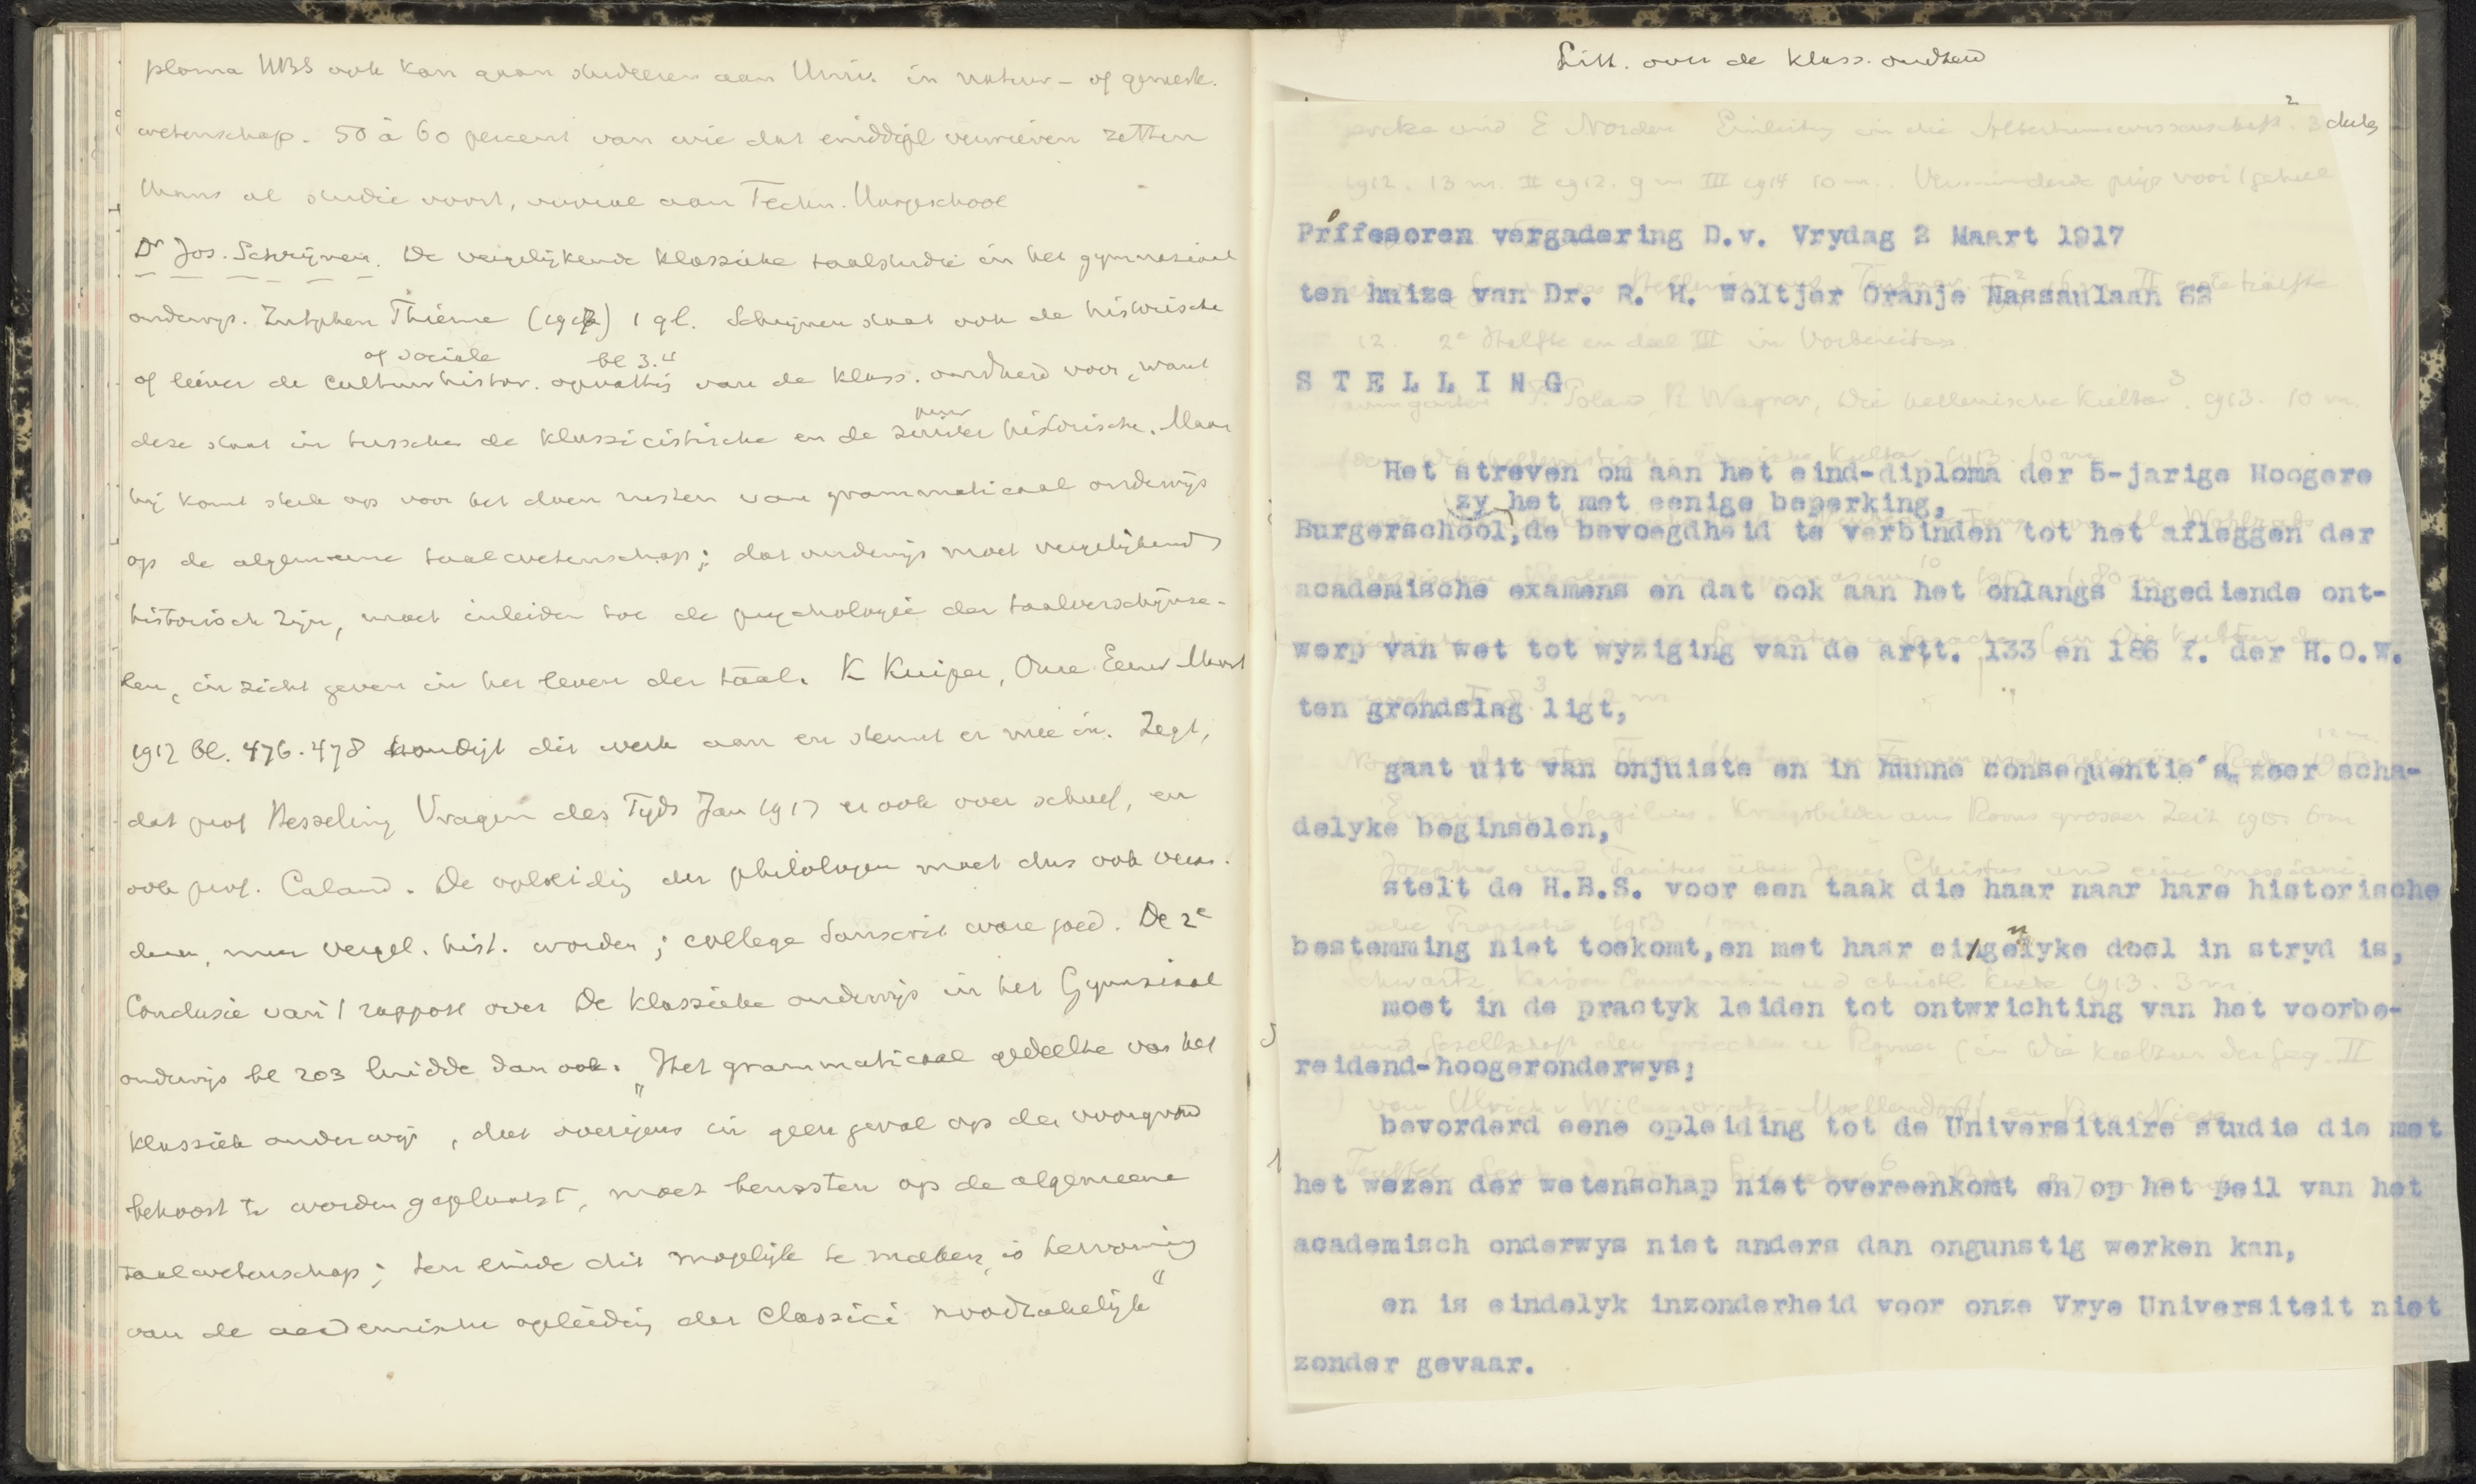 ploma HBS ook kan gaan studeeren aan Univ. in natuur- of geneesk.
wetenschap. 50 à 60 percent van wie dat einddipl verwierven zetten
hunne studie voort, vooral aan Techn. Hoogeschool
Dr Jos. Schrijnen. De vergelijkende klassieke taalstudie in het gymnasiaal
onderwijs. Zutphen Thieme (1917) 1 gl. Schrijnen staat ook de historische
of sociale bl 3.4
of liever de cultuurhistor. opvatting van de klass. oudheid voor, want
puur
deze staat in tusschen de klassicistische en de zuiver historische. Maar
hij komt sterk op voor het doen rusten van grammaticaal onderwijs
op de algemeene taalwetenschap; dat onderwijs moet vergelijkend
historisch zijn, moet inleiden tot de psychologie der taalverschijnse-
len, inzicht geven in het leven der taal. K Kuiper, Onze Eeuw Maart
1917 bl. 476-478 kondigt dit werk aan en stemt er mee in. Zegt,
dat prof Hesseling Vragen des Tijds Jan 1917 er ook over schreef, en
ook prof. Caland. De opleiding der philologen moet dus ook
meer vergel. hist. worden; college Sanscrit ware goed. De 2e
Conclusie van 't rapport over De klassieke onderwijs in het Gymnasiaal
onderwijs bl 203 luidde dan ook: "Het grammaticaal gedeelte van het
klassiek onderwijs, dat overigens in geen geval op den voorgrond
behoort te worden geplaatst, moet berusten op de algemeene
taalwetenschap; ten einde dit mogelijk te maken, is hervorming
van de academische opleiding der classici noodzakelijk"
Litt. over de klass. oudheid
2 3 deelen
1912. 13 m. II 1912. 9 m III 1914 10 m. Verminderde prijs voor 't geheel
Prffesoren vergadering D.v. Vrydag 2 Maart 1917
ten huize van Dr. R. H. Woltjer Oranje Nassaulaan 62
12. 2e Hälfte en deel III in Vorbereitung.
STELLING
F. Poland R Wagner, Die hellenische Kultur 3. 1913. 10 m.
Het streven om aan het eind-diploma der 5-jarige Hoogere
zy het met eenige beperking,
Burgerschool,de bevoegdheid te verbinden tot het afleggen der
academische examens en dat ook aan het onlangs ingediende ont-
werp van wet tot wyziging van de artt. 133 en 186 f. der H.O.W.
ten grondslag ligt,
gaat uit van onjuiste en in hunne consequentie's zeer scha-
Ennius u Vergilius. Kriegsbilder aus Roms grosser Zeit 1915 6 m
delyke beginselen,
Josephus und Tacitus über Jesus Christus und eine messiani-
stelt de H.B.S. voor een taak die haar naar hare historische
sche Prophetie 1913 1 m.
bestemming niet toekomt,en met haar eingelyke doel in stryd is,
Schwartz, Kaiser Constantin u d christl Kirche 1913. 3 m.
moet in de practyk leiden tot ontwrichting van het voorbe-
und Gesellschaft der Griechen u Römer (in Die Kultur der Geg. II
reidend-hoogeronderwys;
von Ulrich v Wilamowitz-Moellendorff en B. Niese
bevorderd eene opleiding tot de Universitaire studie die met
het wezen der wetenschap niet overeenkomt en op het peil van het
academisch onderwys niet anders dan ongunstig werken kan,
en is eindelyk inzonderheid voor onze Vrye Universiteit niet
zonder gevaar.